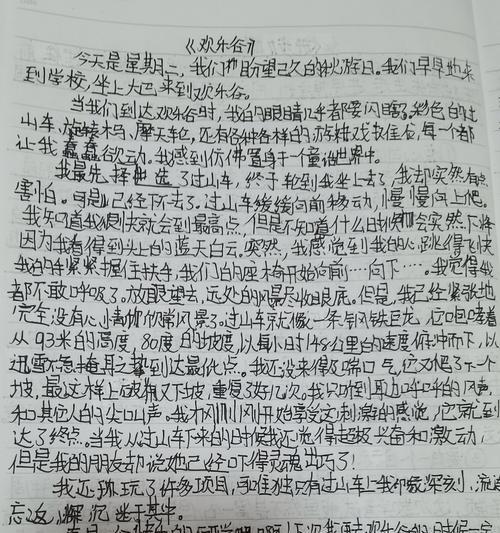 《欢乐谷》
今天是星期二,我们期盼望已久的秋游日。我们早早地来
到学校,坐上大巴,来到欢乐谷。
当我们到达欢乐谷时,我的眼睛几乎都要闪瞎了。彩色的过
山车,旋转木马,摩天轮,还有各种各样的游戏,每一个都
让我蠢蠢欲动。我感到仿佛置身于一个童话世界中。
我最先选了过山车,终于轮到我坐上去了,我却突然有点
害怕。可是已经下不去了。过山车缓缓向前移动,慢慢向上爬。
我知道我很快就会到最高点,但是不知道什么时候会突然下降
因为我看得到头上的蓝天白云。突然,我感觉到我的心跳得飞快
我的手紧紧握住扶手,我们的座椅开始向前……向下……。我觉得我
都不敢呼吸了。放眼望去,远处的风景尽收眼底。但是,我已经紧张地
完全没有心情欣赏风景了。过山车就像一条钢铁巨龙,它咆哮着
从93米的高度,80度的坡度,以每小时148公里的速度俯冲而下,以
迅雪不急掩耳之势到达最低点。我还没来得及喘口气,它又爬了一个
坡,最这样上坡又下坡,重复了好几次。我只听到耳边呼呼的风声,
和其他人的尖叫声。我才刚刚开始享受刺激的感觉,它就到
达了终点。当我从过山车下来的时候我还觉得超级兴奋和激动,
但是我的朋友却说她已经吓得灵魂出巧了!
我还玩了许多项目,可唯独只有过山车让我印象深刻,流连
忘返,深沉迷于其中。